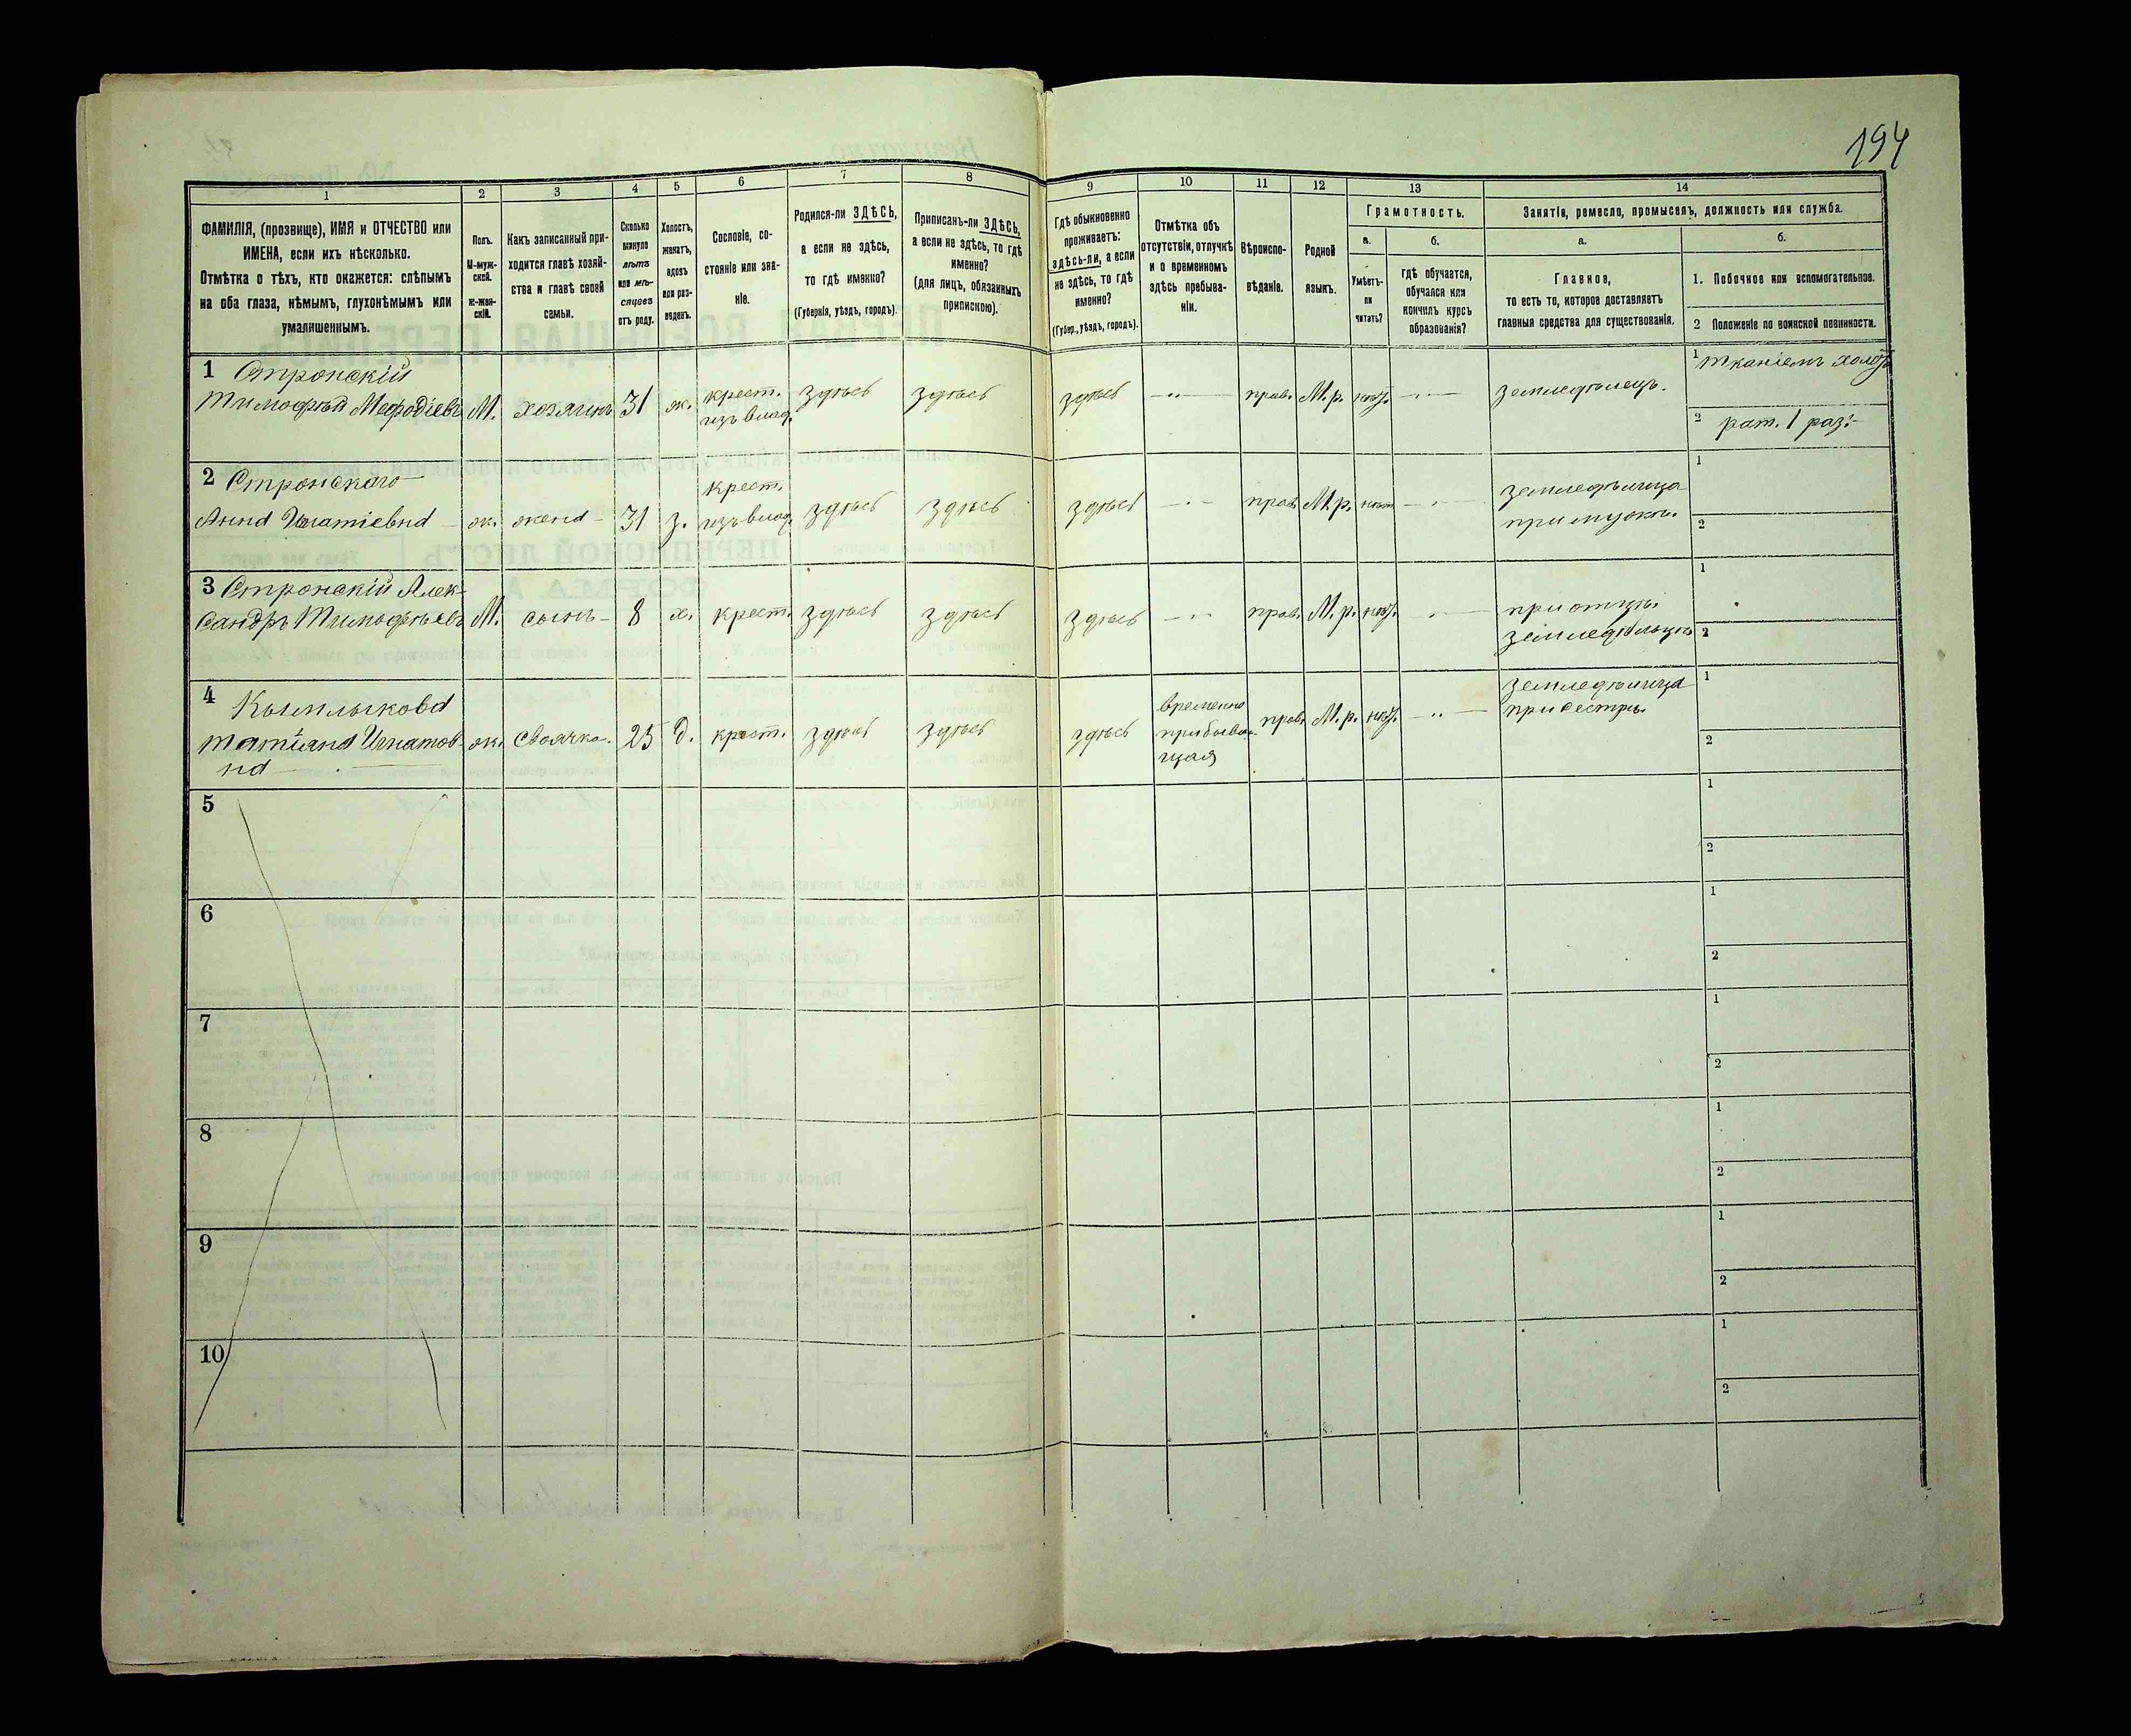 194
1
2
3
4
5
6
7
8
9
10
11
12
13
14
ФАМИЛІЯ, (прозвище), ИМЯ и ОТЧЕСТВО или
ИМЕНА, если ихъ нѣсколько.
Отмѣтка о тѣхъ, кто окажется: слѣпымъ
на оба глаза, нѣмымъ, глухонѣмымъ или
умалишеннымъ.
Полъ.
М-муж-
ской.
Ж-жен-
скій.
Какъ записанный при-
ходится главѣ хозяй-
ства и главѣ своей
семьи.
Сколько
минуло
лѣтъ
или мѣ-
сяцевъ
отъ роду.
Холостъ,
женатъ,
вдовъ
или раз-
веденъ.
Сословіе, со-
стояніе или зва-
ніе.
Родился-ли ЗДѢСЬ,
а если не здѣсь,
то гдѣ именно?
(Губернія, уѣздъ, городъ).
Приписанъ-ли ЗДѢСЬ,
а если не здѣсь, то гдѣ
именно?
(для лицъ, обязанныхъ
припискою).
Гдѣ обыкновенно
проживаетъ:
здѣсь-ли, а если
не здѣсь, то гдѣ
именно?
(Губер., уѣздъ, городъ).
Отмѣтка объ
отсутствіи, отлучкѣ
и о временномъ
здѣсь пребыва-
ніи.
Вѣроиспо-
вѣданіе.
Родной
языкъ.
Грамотность.
а.
Умѣетъ-
ли
читать?
б.
гдѣ обучается,
обучался или
кончилъ курсъ
образованія?
Занятіе, ремесло, промыселъ, должность или служба.
а.
Главное,
то есть то, которое доставляетъ
главныя средства для существованія.
б.
1. Побочное или вспомогательное.
2 Положеніе по воинской повинности.
1 Стронскій
Тимофѣй Мефодіевъ М. хозяинъ 31 ж. крест. изъ влад. здѣсь здѣсь здѣсь прав. М.р. нѣт. земледѣлецъ.
1 тканіемъ холст
2 рат. 1 раз.
2 Стронскаго
Анна Игнатіевна ж. жена 31 з. крест. изъ влад. здѣсь здѣсь здѣсь прав. М.р. нѣт земледѣлица
при мужѣ.
1
2
3 Стронскій Алек-
сандръ Тимофѣевъ М. сынъ 8 х. крест. здѣсь здѣсь здѣсь прав. М.р. нѣт. при отцѣ
земледѣльцѣ
1
2
4
Татіяна Игнатов-
на ж. своячка. 25 д. крест. здѣсь здѣсь здѣсь временно
прибыва-
щая прав. М.р. нѣт. земледѣлица
при сестрѣ.
1
2
5
1
2
6
1
2
7
1
2
8
1
2
9
1
2
10
1
2